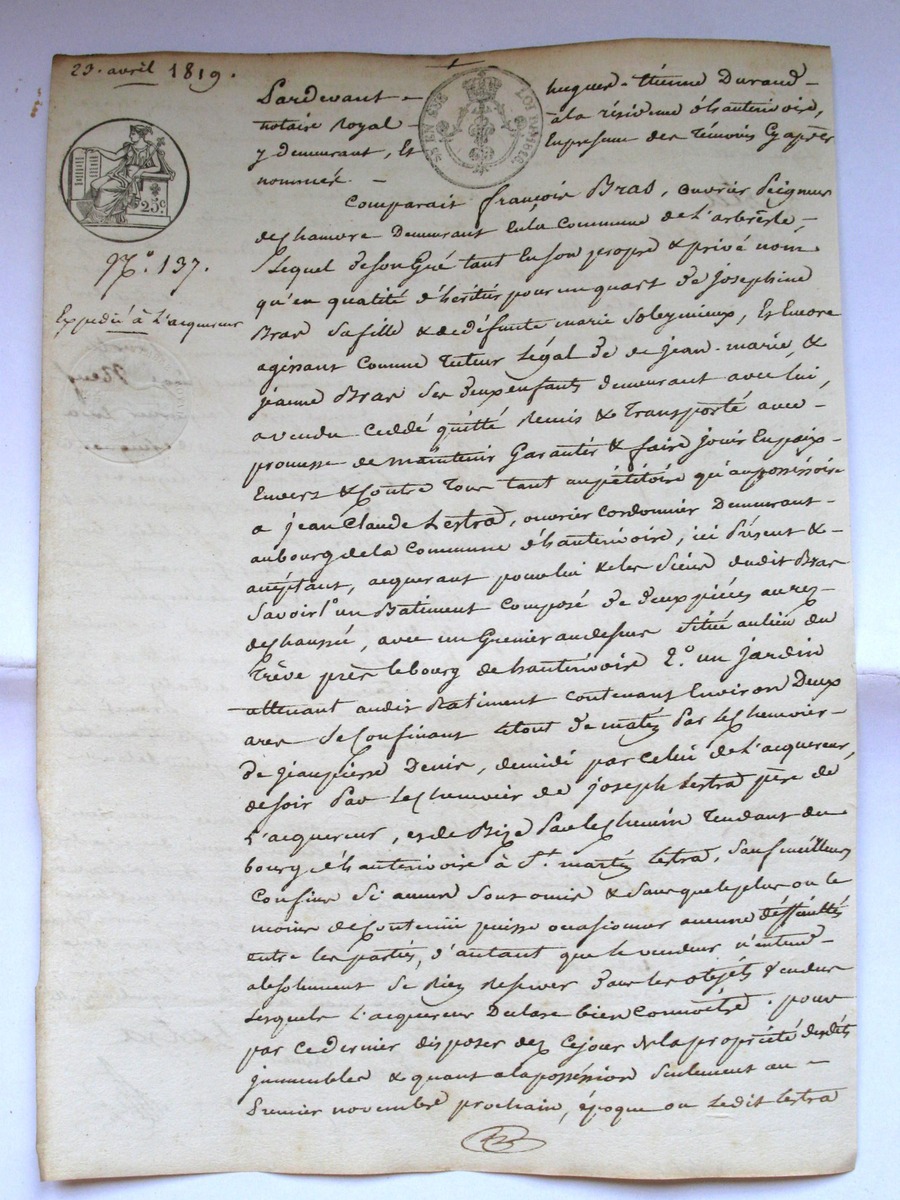 23. avril 1819.
25 c.
N.o 137.
Expedié à L'acquereur
Pardevant hugues-étienne Durand
notaire Royal à la résidence d'hauterivoire,
y demeurant, Et En presence des témoins Cyaprès
nommés.
Comparait françois Bras, ouvrier Peigneur
de Chanvre Demeurant En la Commune de L'arbresle
Lequel de son Gré tant En son propre & privé nom
qu'en qualité d'héritier pour un quart de Josephine
Bras sa fille & de défunte marie Soleymieux, Et Encore
agissant Comme tuteur Légal de jean-marie, &
jeanne Bras ses deux enfants demeurant avec lui,
a vendu Ceddé quitté Remis & transporté avec
promesse de maintenir Garantir & faire jouir En paix
Envers & Contre tous tant au pétitoire qu'au possessoire
a jean Claude Lestra, ouvrier Cordonnier Demeurant
au bourg de la Commune d'hauterivoire, ici Présent &
acceptant, acquerant pour lui & les Siens dudit Bras
Savoir 1.o un Batiment Composé de deux pièces au rez-
de Chaussée, avec un Grenier au dessus Situé au lieu du
Trève près le bourg de hauterivoire 2.o un jardin
attenant audit Batiment Contenant Environ Deux
ares Se Confinant le tout de matin Par Le Chenevier
de jean pierre Denis, de midi par Celui de L'acquereur,
de soir Par Le Chenevier de joseph Lestra père de
L'acquereur, et de Bize Par le Chemin tendant du
bourg d'hauterivoire à S.t martin Lestra, Sauf meilleurs
Confins Si aucun Sont omis & Sans que le plus ou le
moins de Contenu puisse occasionner aucune difficultés
entre les parties, d'autant que le vendeur n'entend
absolument Se Rien Reserver dans les objets vendus
Lesquels L'acquereur Declare bien Connoitre. pour
par Ce dernier disposer dez Ce jour de la propriété desdits
jmmeubles & quant a la possession Seulement au
Premier novembre prochain, époque ou Ledit Lestra